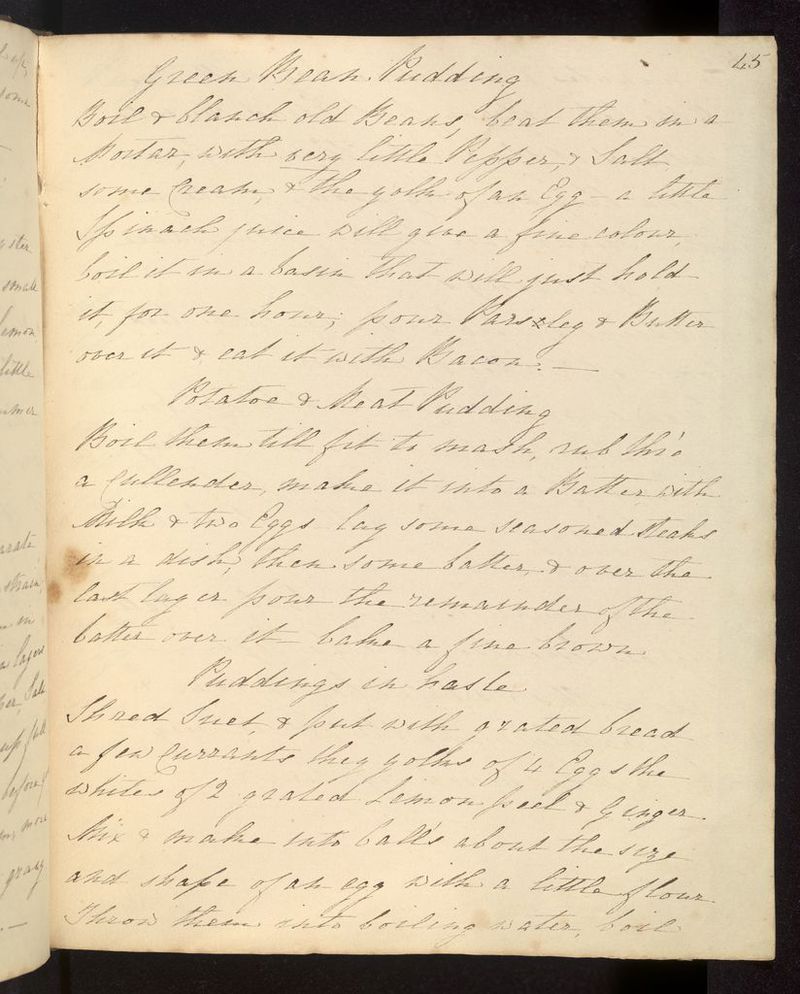 45
Green Bean Pudding
Boil & blanch old Beans, beat them in a
Mortar, with very little Pepper, & Salt
some Cream, & the yolk of an Egg - a little
Spinach juice will give a fine colour,
boil it in a basin that will just hold
it, for one hour; pour Parsley & Butter
over it & eat it with Bacon. —
Potatoe & Meat Pudding
Boil them till fit to mash, rub thro'
a Cullender, make it into a Batter with
Milk & two Eggs lay some seasoned steaks
in a dish, then some batter, & over the
last layer pour the remainder of the
batter over it bake a fine brown
Puddings in haste
Shred Suet, & put with grated bread
a few Currants they yolks of 4 Eggs the
whites of 2 grated Lemon peel & Ginger.
Mix & make into ball's about the size
and shape of an egg with a little flour.
Throw them into boiling water, boil
some
small
lemon
little
strain
in
layers
Salt
before
more
gravy